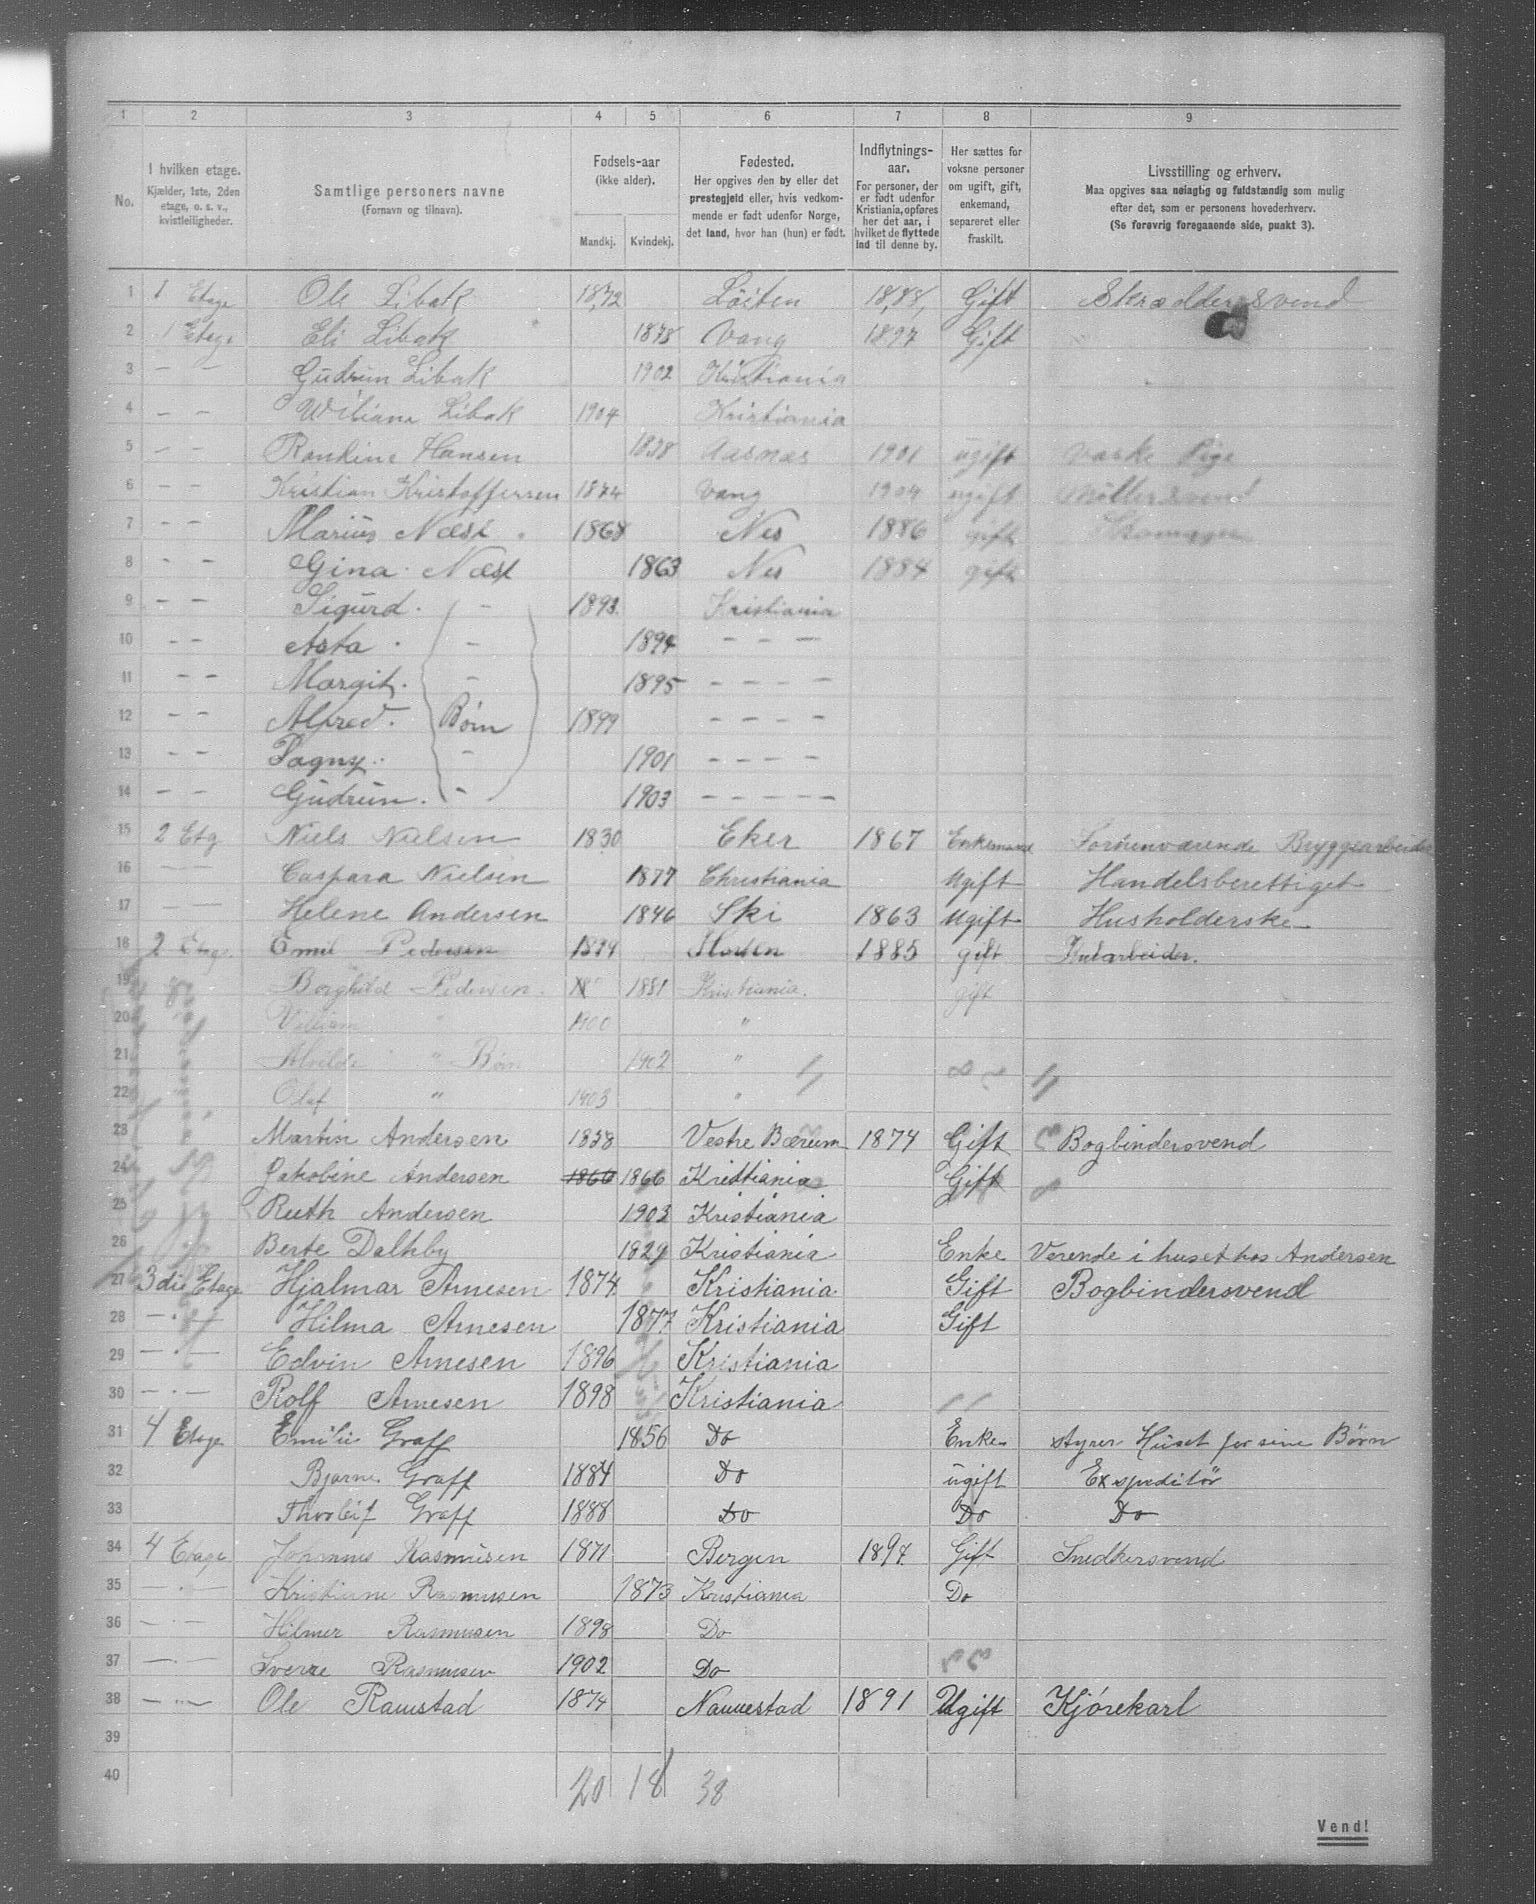 1 2 3 4 5 6 7 8 9
No. I hvilken etage. Kjælder, 1ste, 2den etage, o. s. v., kvistleiligheder. Samtlige personers navne (Fornavn og tilnavn). Fødsels-aar (ikke alder). Mandkj. Kvindekj. Fødested. Her opgives den by eller det prestegjeld eller, hvis vedkommende er født udenfor Norge, det land, hvor han (hun) er født. Indflytnings-aar. For personer, der er født udenfor Kristiania, opføres her det aar, i hvilket de flyttede ind til denne by. Her sættes for voksne personer om ugift, gift, enkemand, separeret eller fraskilt. Livsstilling og erhverv. Maa opgives saa nøiagtig og fuldstændig som mulig efter det, som er personens hovederhverv. (Se forøvrig foregaaende side, punkt 3).
1 1 Etage Ole Libak 1872 Löiten 1888 Gift Skræddersvend
2 1 Etage Eli Libak 1878 Vang 1897 Gift
3 — — Gudrun Libak 1902 Kristiania
4 — — Libak 1904 Kristiania
5 — — Hansen Aasnæs 1901 ugift Vaske Pige
6 — — Kristian Kristoffersen 1874 Vang 1904 ugift Möllersvend
7 — — Marius Næst 1868 Nes 1886 gift Skomager
8 — — Gina Næst 1863 Nes 1884 gift
9 — — Sigurd — 1893 Kristiania
10 — — Asta — 1894 — — — —
11 — — Margit — 1895 — — — —
12 — — Alfred Børn 1899 — — — —
13 — — Dagny — 1901 — — — —
14 — — Gudrun — 1903 — — — —
15 2 Etg Niels Nielsen 1830 Eker 1867 Enkemand Bryggearbeider
16 — Caspara Nielsen 1877 Christiania Ugift Handelsberettiget
17 — — Helene Andersen 1846 Ski 1863 Ugift Husholderske
18 2 Etage Emil Pedersen 1885 gift
19 Borghild Pedersen 1881 Kristiania. gift
20 Villiam " 1900 "
21 " Børn 1902 "
22 Olaf " 1903 "
23 Martin Andersen 1858 Vestre Bærum 1874 Gift Bogbindersvend
24 Jakobine Andersen 1866 1866 Kristiania Gift
25 Ruth Andersen 1903 Kristiania
26 Berte Dalhby 1829 Kristiania Enke Værende i huset hos Andersen
27 3die Etage Hjalmar Arnesen 1874 Kristiania Gift Bogbindersvend
28 — · — Hilma Arnesen 1877 Kristiania Gift
29 — · — Edvin Arnesen 1896 Kristiania
30 — · — Rolf Arnesen 1898 Kristiania
31 4 Etage Emilie Graff 1856 Do Enke styrer Huset for sine Børn
32 Bjarne Graff 1884 Do ugift Expeditör
33 Thorleif Graff 1888 Do Do Do
34 4 Etage Johannes Rasmusen 1871 Bergen 1894 Gift Snedkersvend
35 — · — Kristiane Rasmusen 1873 Kristiania Do
36 — · — Hilmer Rasmusen 1898 Do
37 — · — Sverre Rasmusen 1902 Do
38 — · — Ole Ramstad 1874 Nannestad 1891 Ugift Kjørekarl
39
40 20 18 38
Vend!